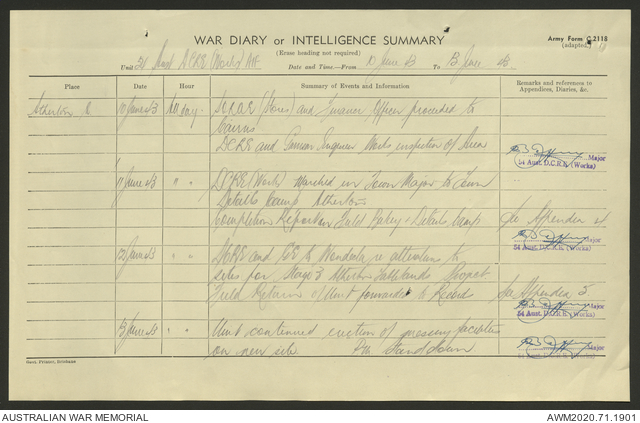 WAR DIARY or INTELLIGENCE SUMMARY
(Erase heading not required)
Army Form C.2118
(adapted)
Unit 54 Aust DCRE (Works) AIF Date and Time.—From 10 June 43 To 13 June 43
Place Hour Summary of Events and Information Remarks and references to
Appendices, Diaries, &c.
Atherton Q 10 June 43 All day (Stores) and Finance Officer proceeded to
Cairns
DCRE and Garrison Engineer Works inspection of Area
Major
54 Aust. D.C.R.E. (Works)
11 June 43 " " DCRE (Works) Marched in Town Major to Town
Details Camp Atherton
Completion Report on Field Bakery & Details Camp See Appendix
Major
54 Aust. D.C.R.E. (Works)
12 June 43 " " DCRE and GE to Wondecla re alterations to
sites for Stage 3 Atherton Tablelands Project
Field Return of Unit forwarded to Records See Appendix 5
Major
54 Aust. D.C.R.E. (Works)
13 June 43 " " Unit continued erection of messing facilities
on new site. Pm Stand down
Major
54 Aust. D.C.R.E. (Works)
Govt. Printer, Brisbane
AUSTRALIAN WAR MEMORIAL AWM2020.71.1901